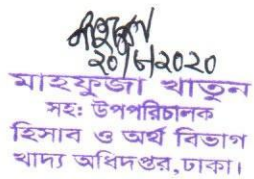 ২০/৮/২০২০
মাহফুজা খাতুন
সহ: উপপরিচালক
হিসাব ও অর্থ বিভাগ
খাদ্য অধিদপ্তর,ঢাকা।